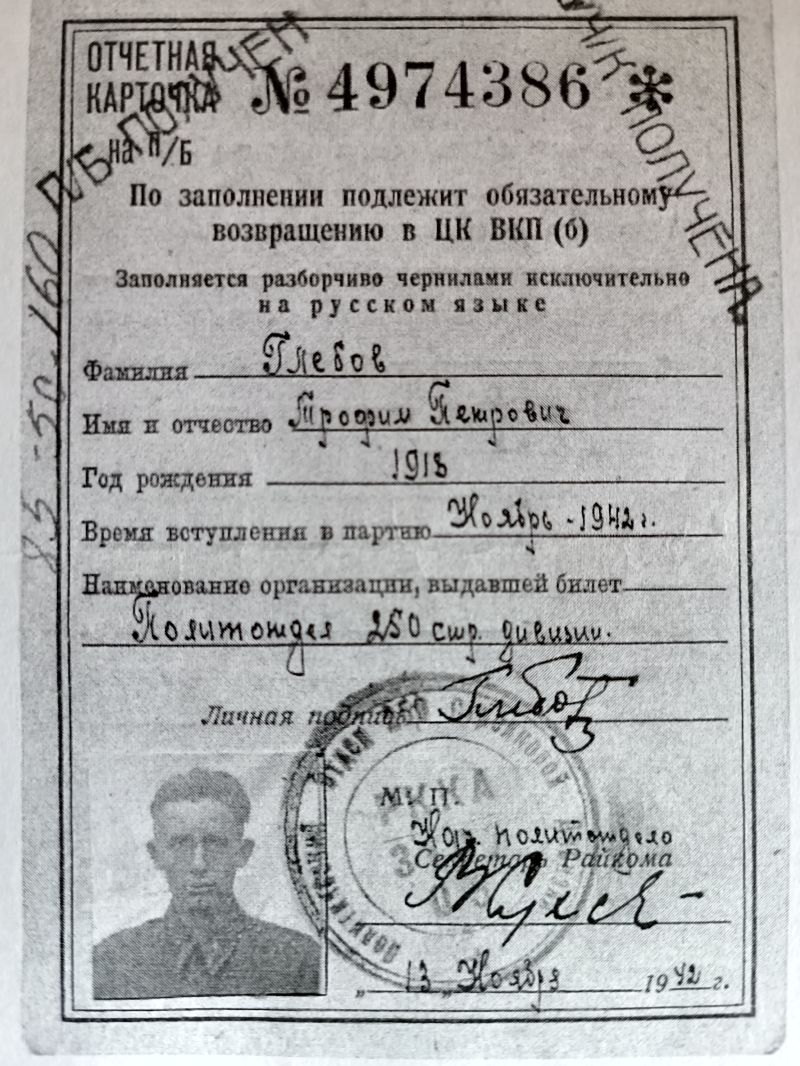 ОТЧЕТНАЯ
КАРТОЧКА
№ 4974386 *
на п/Б
П/Б ПОЛУЧЕН
УЧ/К ПОЛУЧЕНА
По заполнении подлежит обязательному
возвращению в ЦК ВКП (б)
Заполняется разборчиво чернилами исключительно
на русском языке
Фамилия Глебов
Имя и отчество Трофим Петрович
Год рождения 1918
Время вступления в партию Ноябрь - 1942 г.
Наименование организации, выдавшей билет
Политотдел 250 стр. дивизии.
Личная подпись Глебов
М. П.
Нач. политотдела
Секретарь Райкома
„ 13 „ Ноября 1942 г.
ПОЛИТИЧЕСКИЙ ОТДЕЛ 250 СТРЕЛКОВОЙ